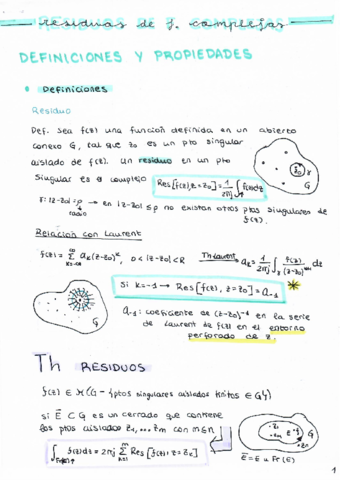 residuos de f. complejas
DEFINICIONES Y PROPIEDADES
Definiciones
Residuo
Def. Sea f(z) una función definida en un abierto
conexo G, tal que z₀ es un pto singular
aislado de f(z). Un residuo en un pto
singular es el complejo Res[f(z), z=z₀] = 1/2πj ∫γ f(z)dz
γ: |z-z₀|=ρ → en |z-z₀|≤ρ no existan otros ptos singulares de
radio f(z).
z₀ γ
G
Relación con Laurent
f(z)= ∑ aₖ(z-z₀)ᵏ, 0<|z-z₀|<R Th Laurent aₖ = 1/2πj ∫γ f(z)/(z-z₀)ᵏ⁺¹ dz
k=-∞ ∞
Si k=-1 → Res[f(z), z=z₀] = a₋₁
a₋₁: coeficiente de (z-z₀)⁻¹ en la serie
de Laurent de f(z) en el entorno
perforado de z.
G
Th RESIDUOS
f(z) ∈ H(G - {ptos singulares aislados finitos ∈ G})
si E ⊂ G es un cerrado que contiene
los ptos aislados z₁,...zm con m≤n
∫ f(z)dz = 2πj ∑ Res[f(z), z=zₖ]
k=1 m
E = E ∪ Fr(E)
G
1